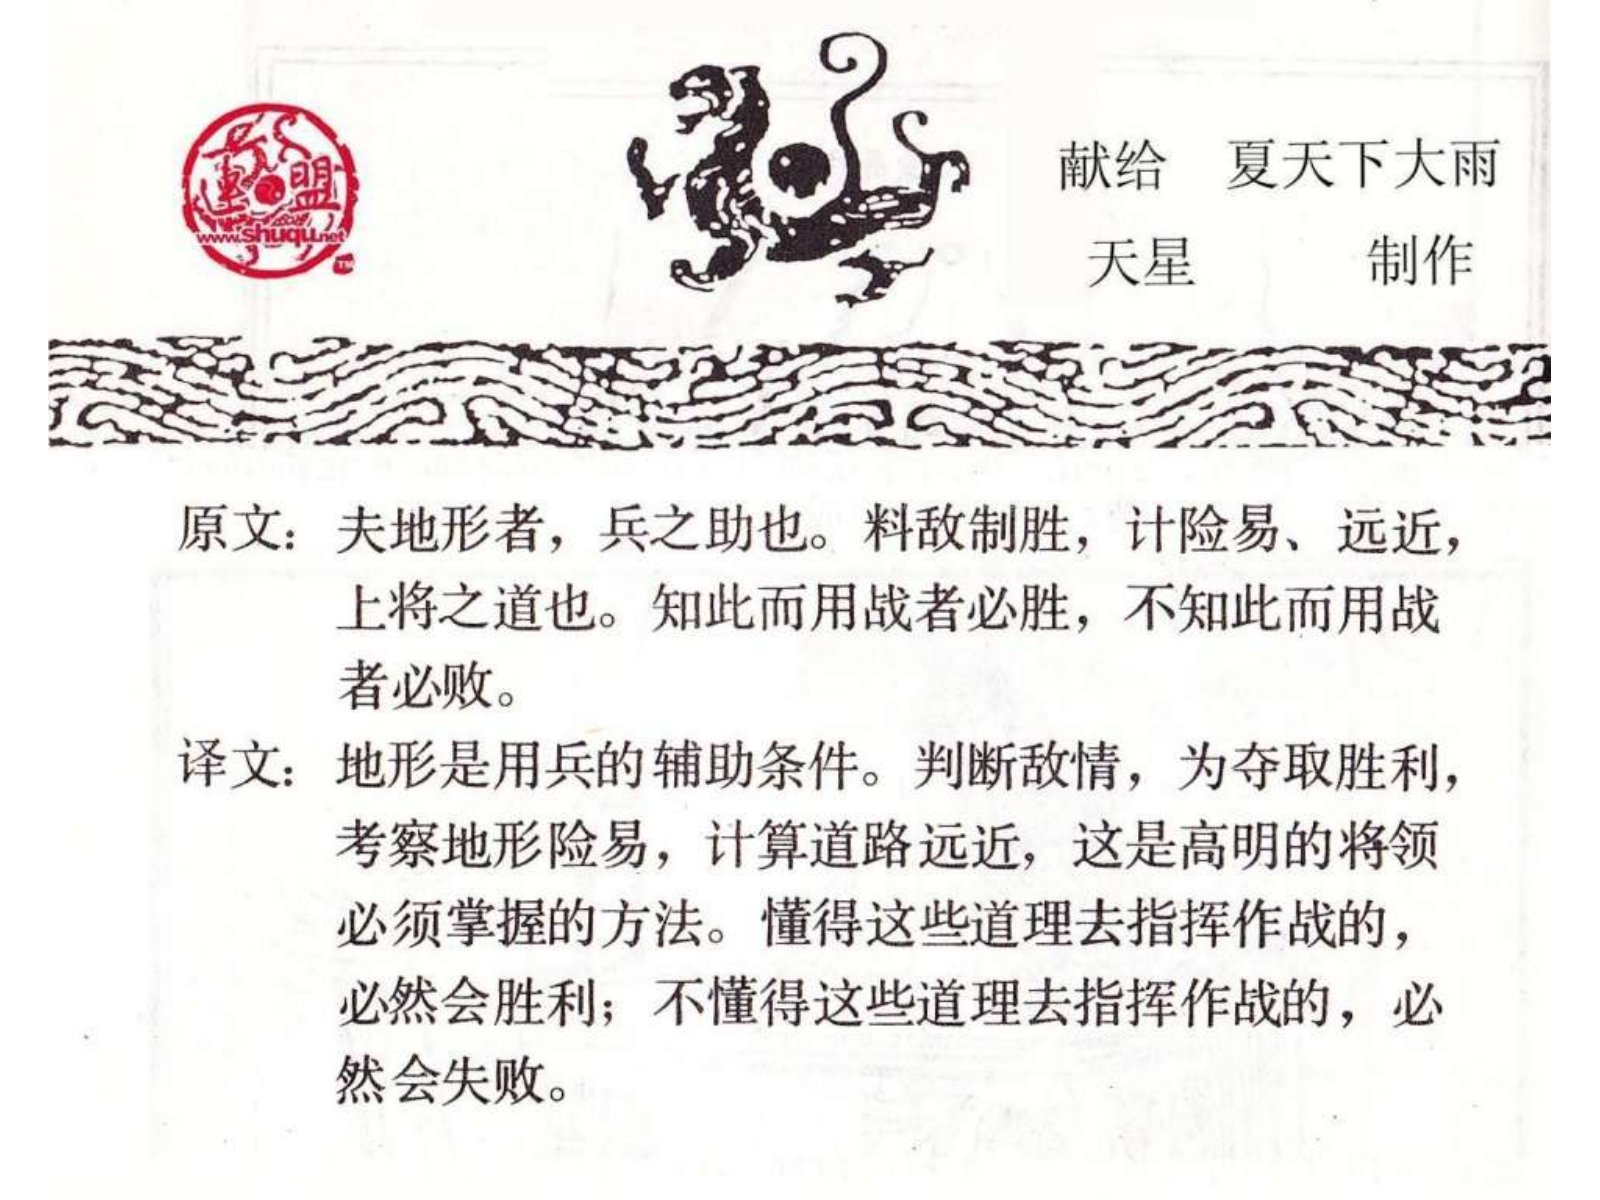 連盟
www.shuqu.net
献给 夏天下大雨
天星 制作
原文：夫地形者，兵之助也。料敌制胜，计险易、远近，
上将之道也。知此而用战者必胜，不知此而用战
者必败。
译文：地形是用兵的辅助条件。判断敌情，为夺取胜利，
考察地形险易，计算道路远近，这是高明的将领
必须掌握的方法。懂得这些道理去指挥作战的，
必然会胜利；不懂得这些道理去指挥作战的，必
然会失败。